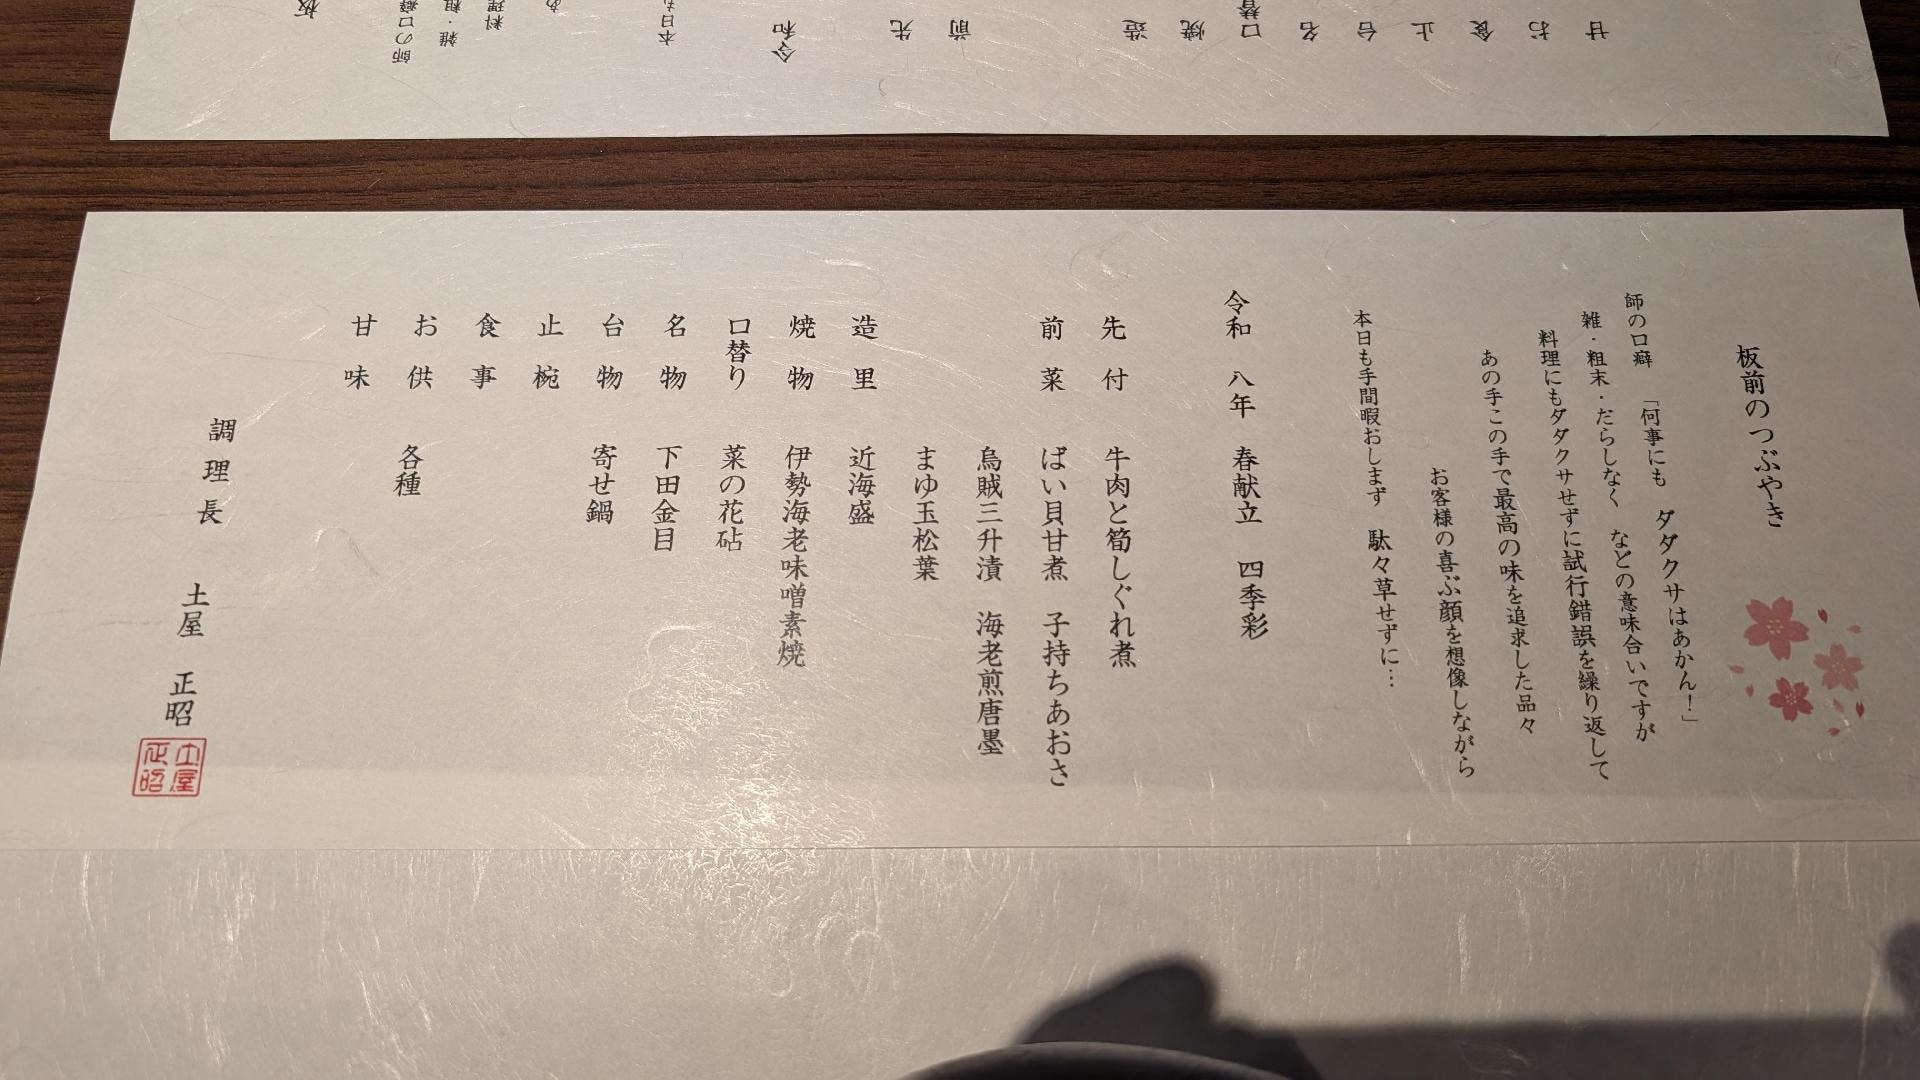 板前のつぶやき
師の口癖 「何事にも ダダクサはあかん!」
雑・粗末・だらしなく などの意味合いですが
料理にもダダクサせずに試行錯誤を繰り返して
あの手この手で最高の味を追求した品々
お客様の喜ぶ顔を想像しながら
本日も手間暇おしまず 駄々草せずに…
令和 八年 春献立 四季彩
先付 牛肉と筍しぐれ煮
前菜 ばい貝甘煮 子持ちあおさ
烏賊三升漬 海老煎唐墨
まゆ玉松葉
造里 近海盛
焼物 伊勢海老味噌素焼
口替り 菜の花砧
名物 下田金目
台物 寄せ鍋
止椀
食事
お供 各種
甘味
調理長 土屋 正昭
土屋
正昭
板
師の口癖
雑・粗
料理
あ
本日も
令和
先
前
造
焼
口替
名
台
止
食
お
甘